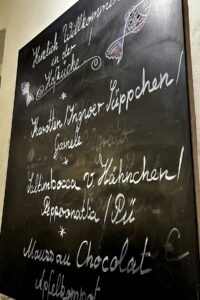 Herzlich Willkommen
in der
Hofküche!
Karotten/Ingwer Süppchen/
Garnele
*
Saltimbocca v Hähnchen/
Pepperonatta/Pü
*
Mousse au Chocolat
Apfelkompot